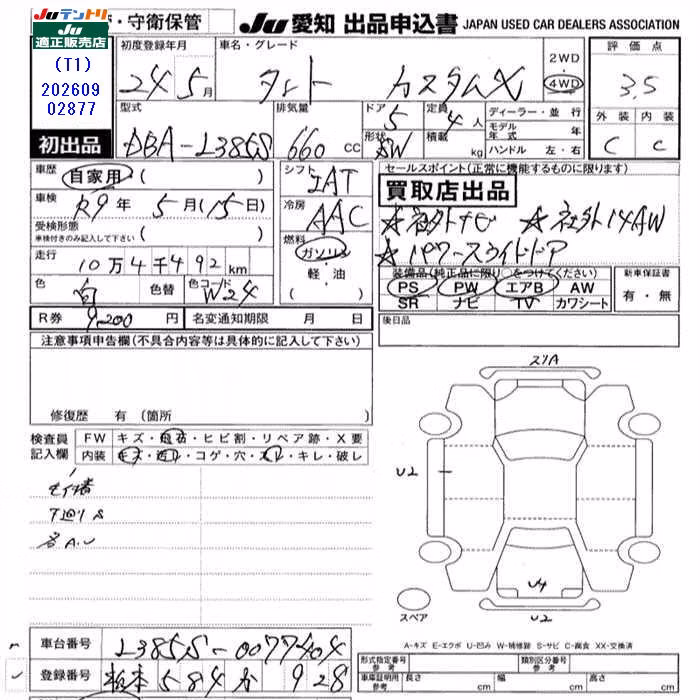 JUテントリ
JU適正販売店
・守衛保管
JU 愛知 出品申込書 JAPAN USED CAR DEALERS ASSOCIATION
(T1)
202609
02877
初出品
初度登録年月
24 5月
車名・グレード
タント カスタムX
2WD
4WD
評価点
3.5
外装 内装
C C
型式
DBA-L385S
排気量
660 CC
ドア
5
形状
SW
定員
4人
積載
kg
ディーラー・並行
モデル年式 年
ハンドル 左・右
車歴
自家用 ( )
車検
R9年 5月(15日)
受検形態
車検付きのみ記入して下さい ( )
走行
10万4千492km
色
白
色替
色コード
W24
シフト
IAT
冷房
AAC
燃料
ガソリン
軽・油
( )
セールスポイント(正常に機能するものに限ります)
買取店出品
☆社外ナビ ☆社外14AW
☆パワースライドドア
装備品(純正品に限り○をつけてください)
PS PW エアB AW
SR ナビ TV カワシート
新車保証書
有・無
R券 9,200 円
名変通知期限 月 日
後日品
注意事項申告欄(不具合内容等は具体的に記入して下さい)
修復歴 有 (箇所
検査員
記入欄
FW キズ・飛石・ヒビ割・リペア跡・X要
内装 キズ・汚れ・コゲ・穴・スレ・キレ・破レ
下廻りS
各A.U
スリA
U2
U4
U2
スペア
A-キズ E-エクボ U-凹み W-補修跡 S-サビ C-腐食 XX-交換済
車台番号
L385S-0077404
登録番号
584 928
形式指定番号
参考
類別区分番号
参考
車庫証明用
参考
長さ cm 幅 cm 高さ cm